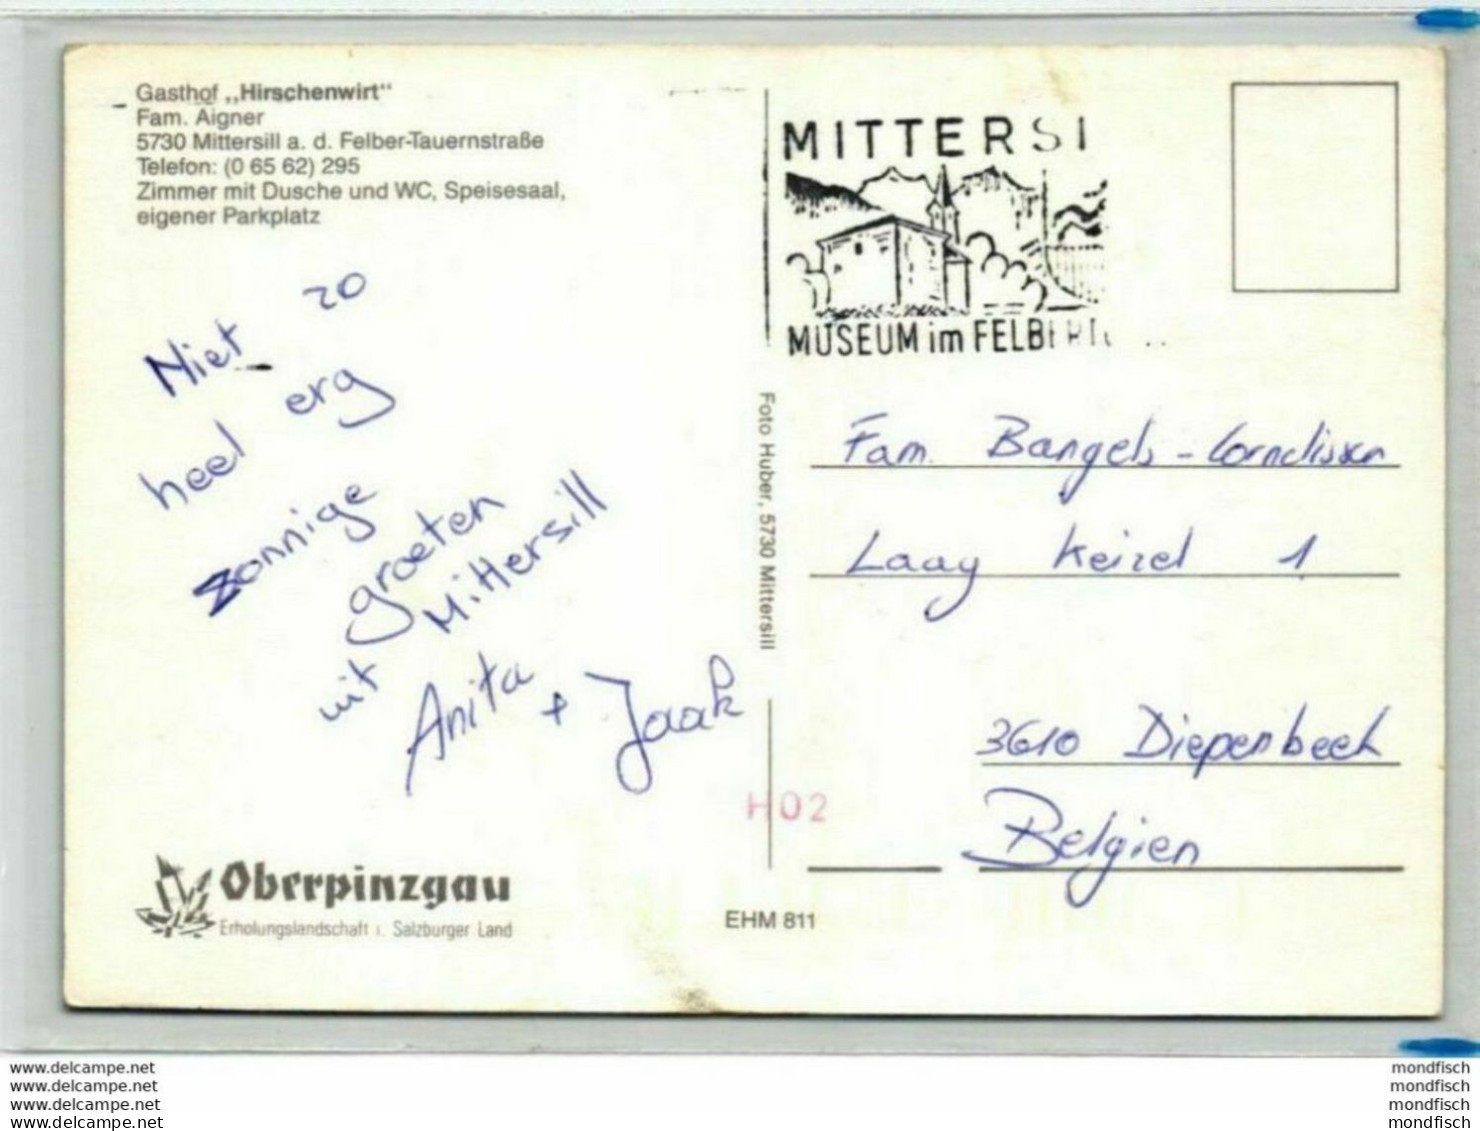 Gasthof „Hirschenwirt"
Fam. Aigner
5730 Mittersill a. d. Felber-Tauernstraße
Telefon: (0 65 62) 295
Zimmer mit Dusche und WC, Speisesaal,
eigener Parkplatz
MITTERSI
MUSEUM im FELBERT
Niet zo
heel erg
zonnige
groeten
uit Mittersill
Anita + Jaak
Foto Huber, 5730 Mittersill
Fam. Bangels - Cornelissen
Laag Keizel 1
3610 Diepenbeek
Belgien
H02
Oberpinzgau
Erholungslandschaft i. Salzburger Land
EHM 811
www.delcampe.net
www.delcampe.net
www.delcampe.net
www.delcampe.net
mondfisch
mondfisch
mondfisch
mondfisch